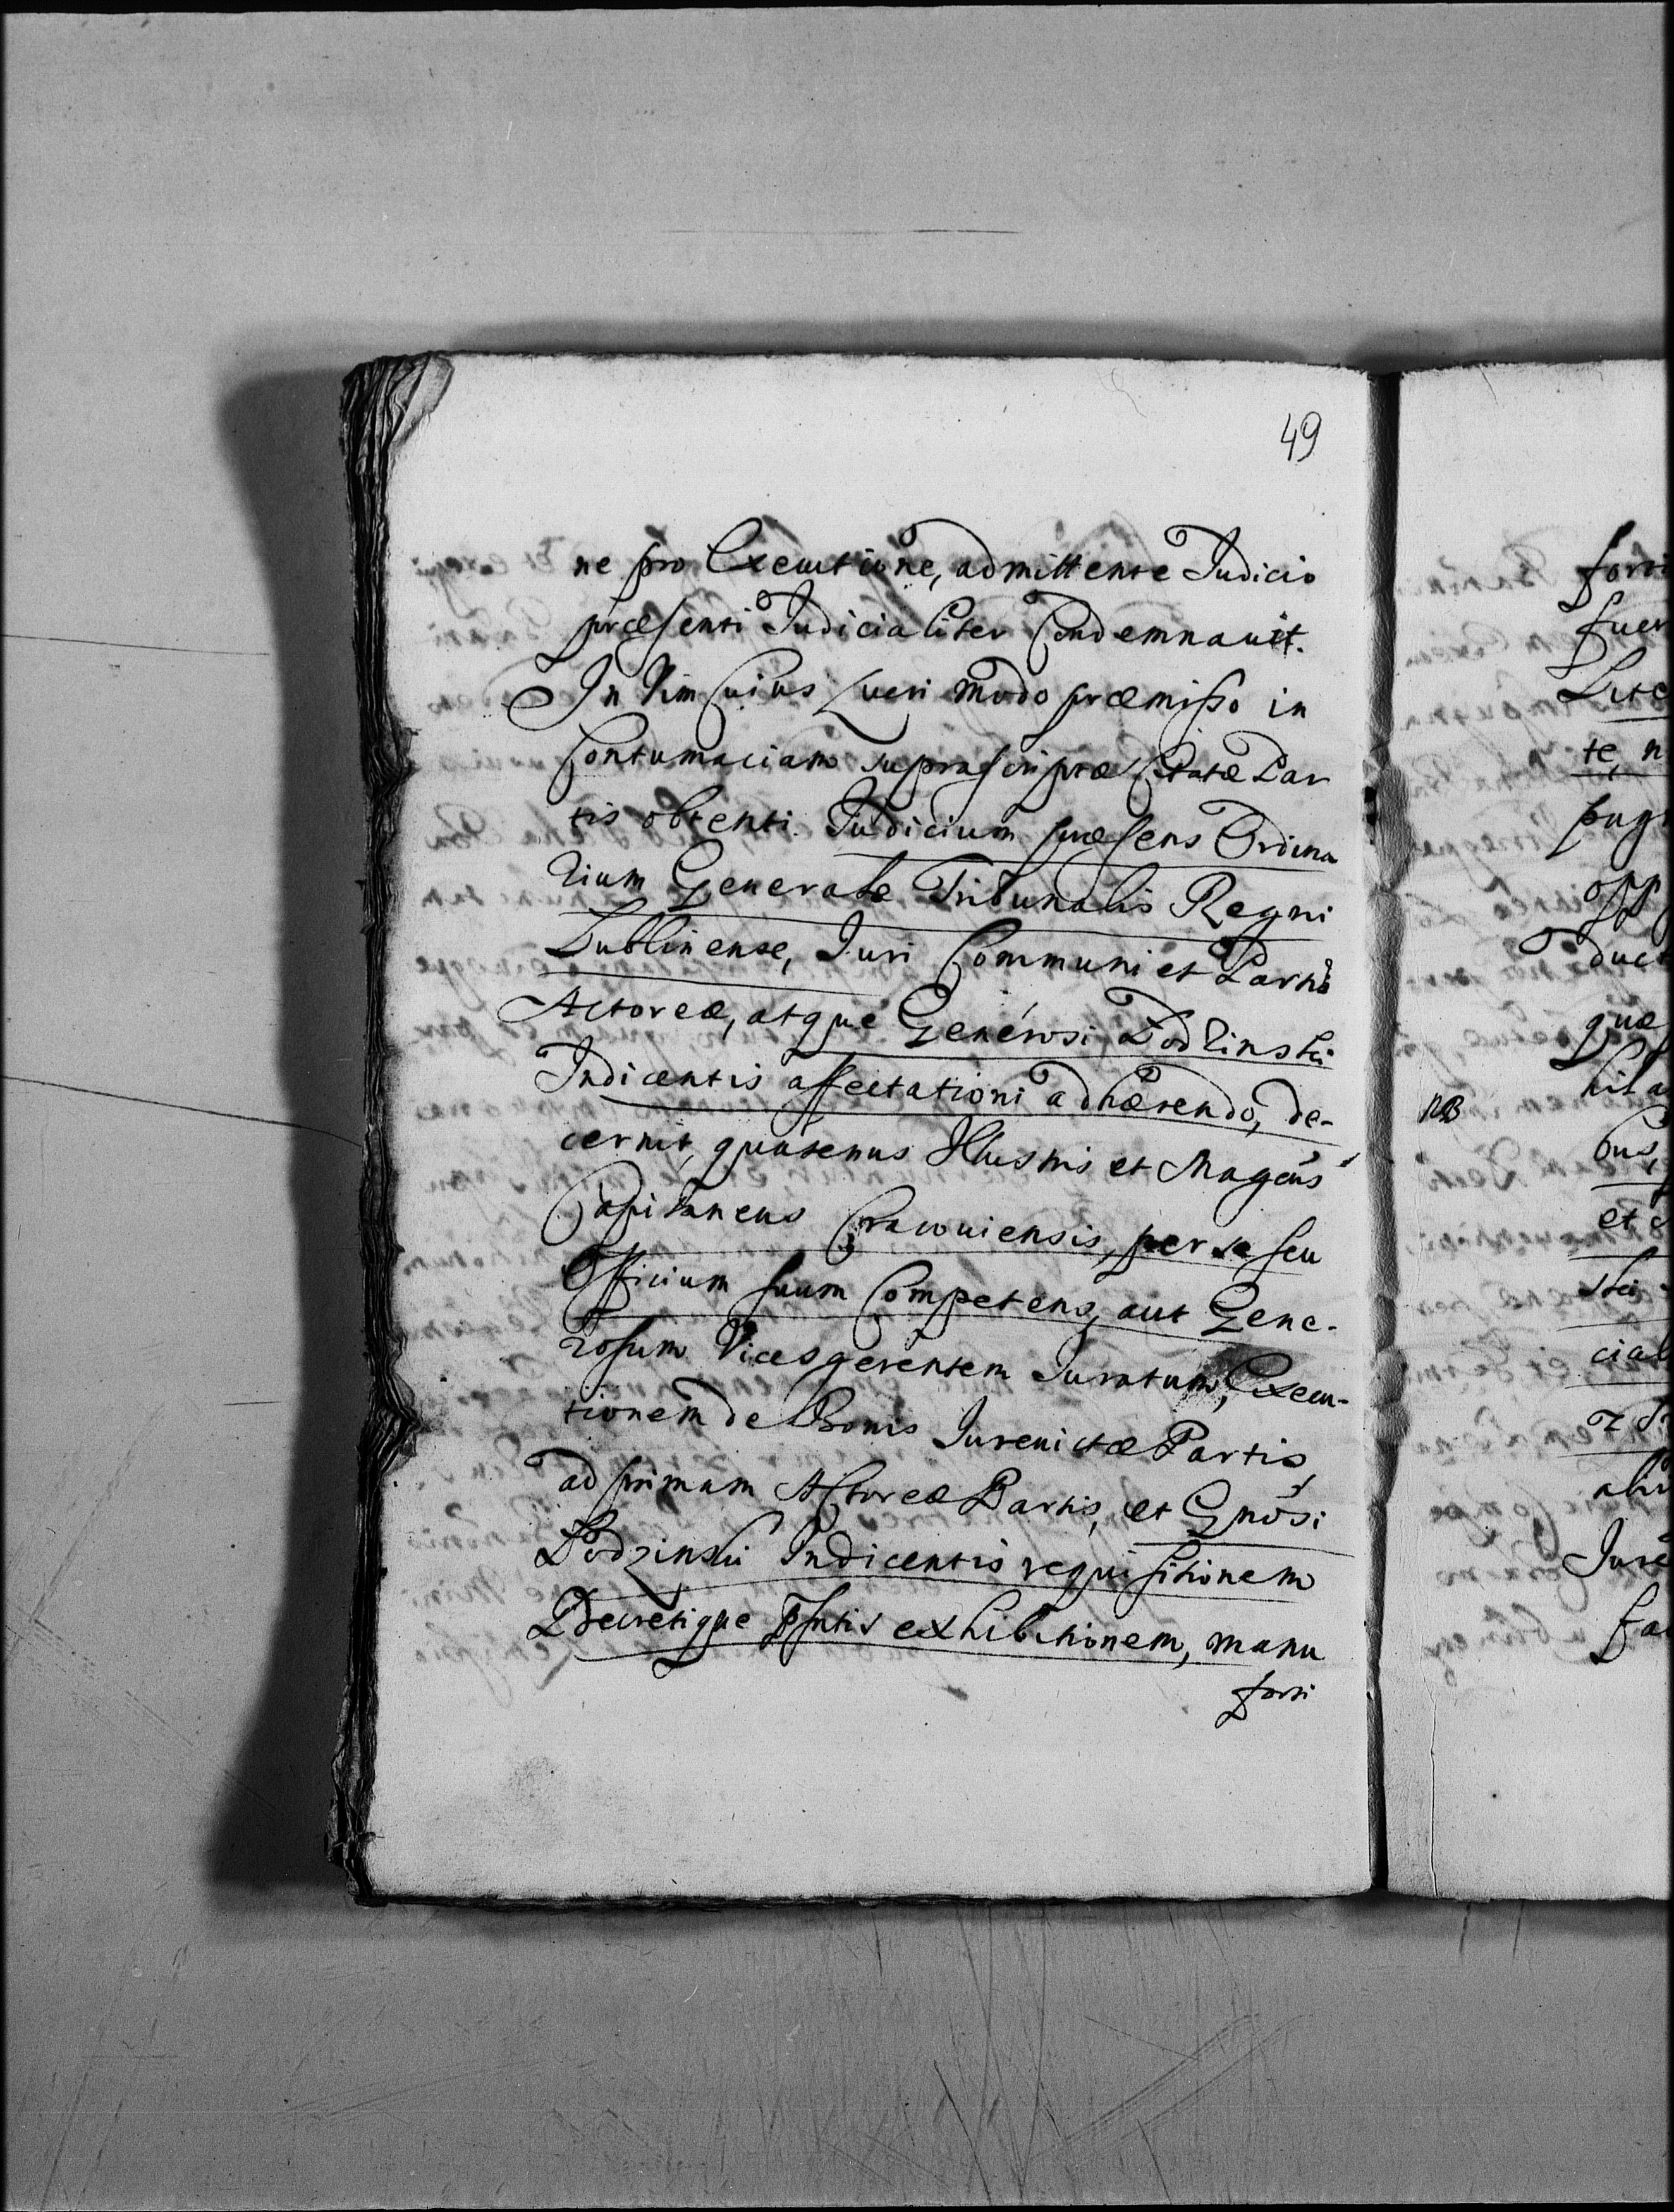 49
ne pro Executione, admittente Judicio
præsenti Judicialiter Condemnauit.
In Vim Cuius Lucri modo præmisso in
Contumaciam suprascriptæ Citatæ Par
tis obtenti. Judicium præsens Ordina
rium Generale Tribunalis Regni
Lublinense, Juri Communi et Partis
Actoreæ, atque Generosi Łodzinski
Indicentis affectationi adhærendo, de-
cernit, quatenus Illustris et Mageus
Capitaneus Cracouiensis, per se seu
Officium suum Competens, aut Gene-
rosum Vicesgerentem Juratum, Execu-
tionem de Bonis Jureuictæ Partis,
ad primam Actoreæ Partis, et Gnosi
Łodzinski Indicentis requisitionem
Decretique psntis exhibitionem, manu
forti
forti
fuer
Lite
te, n
pug
opp
duct
quæ
hila
NB
bus,
et
ski
cial
Jure
fa